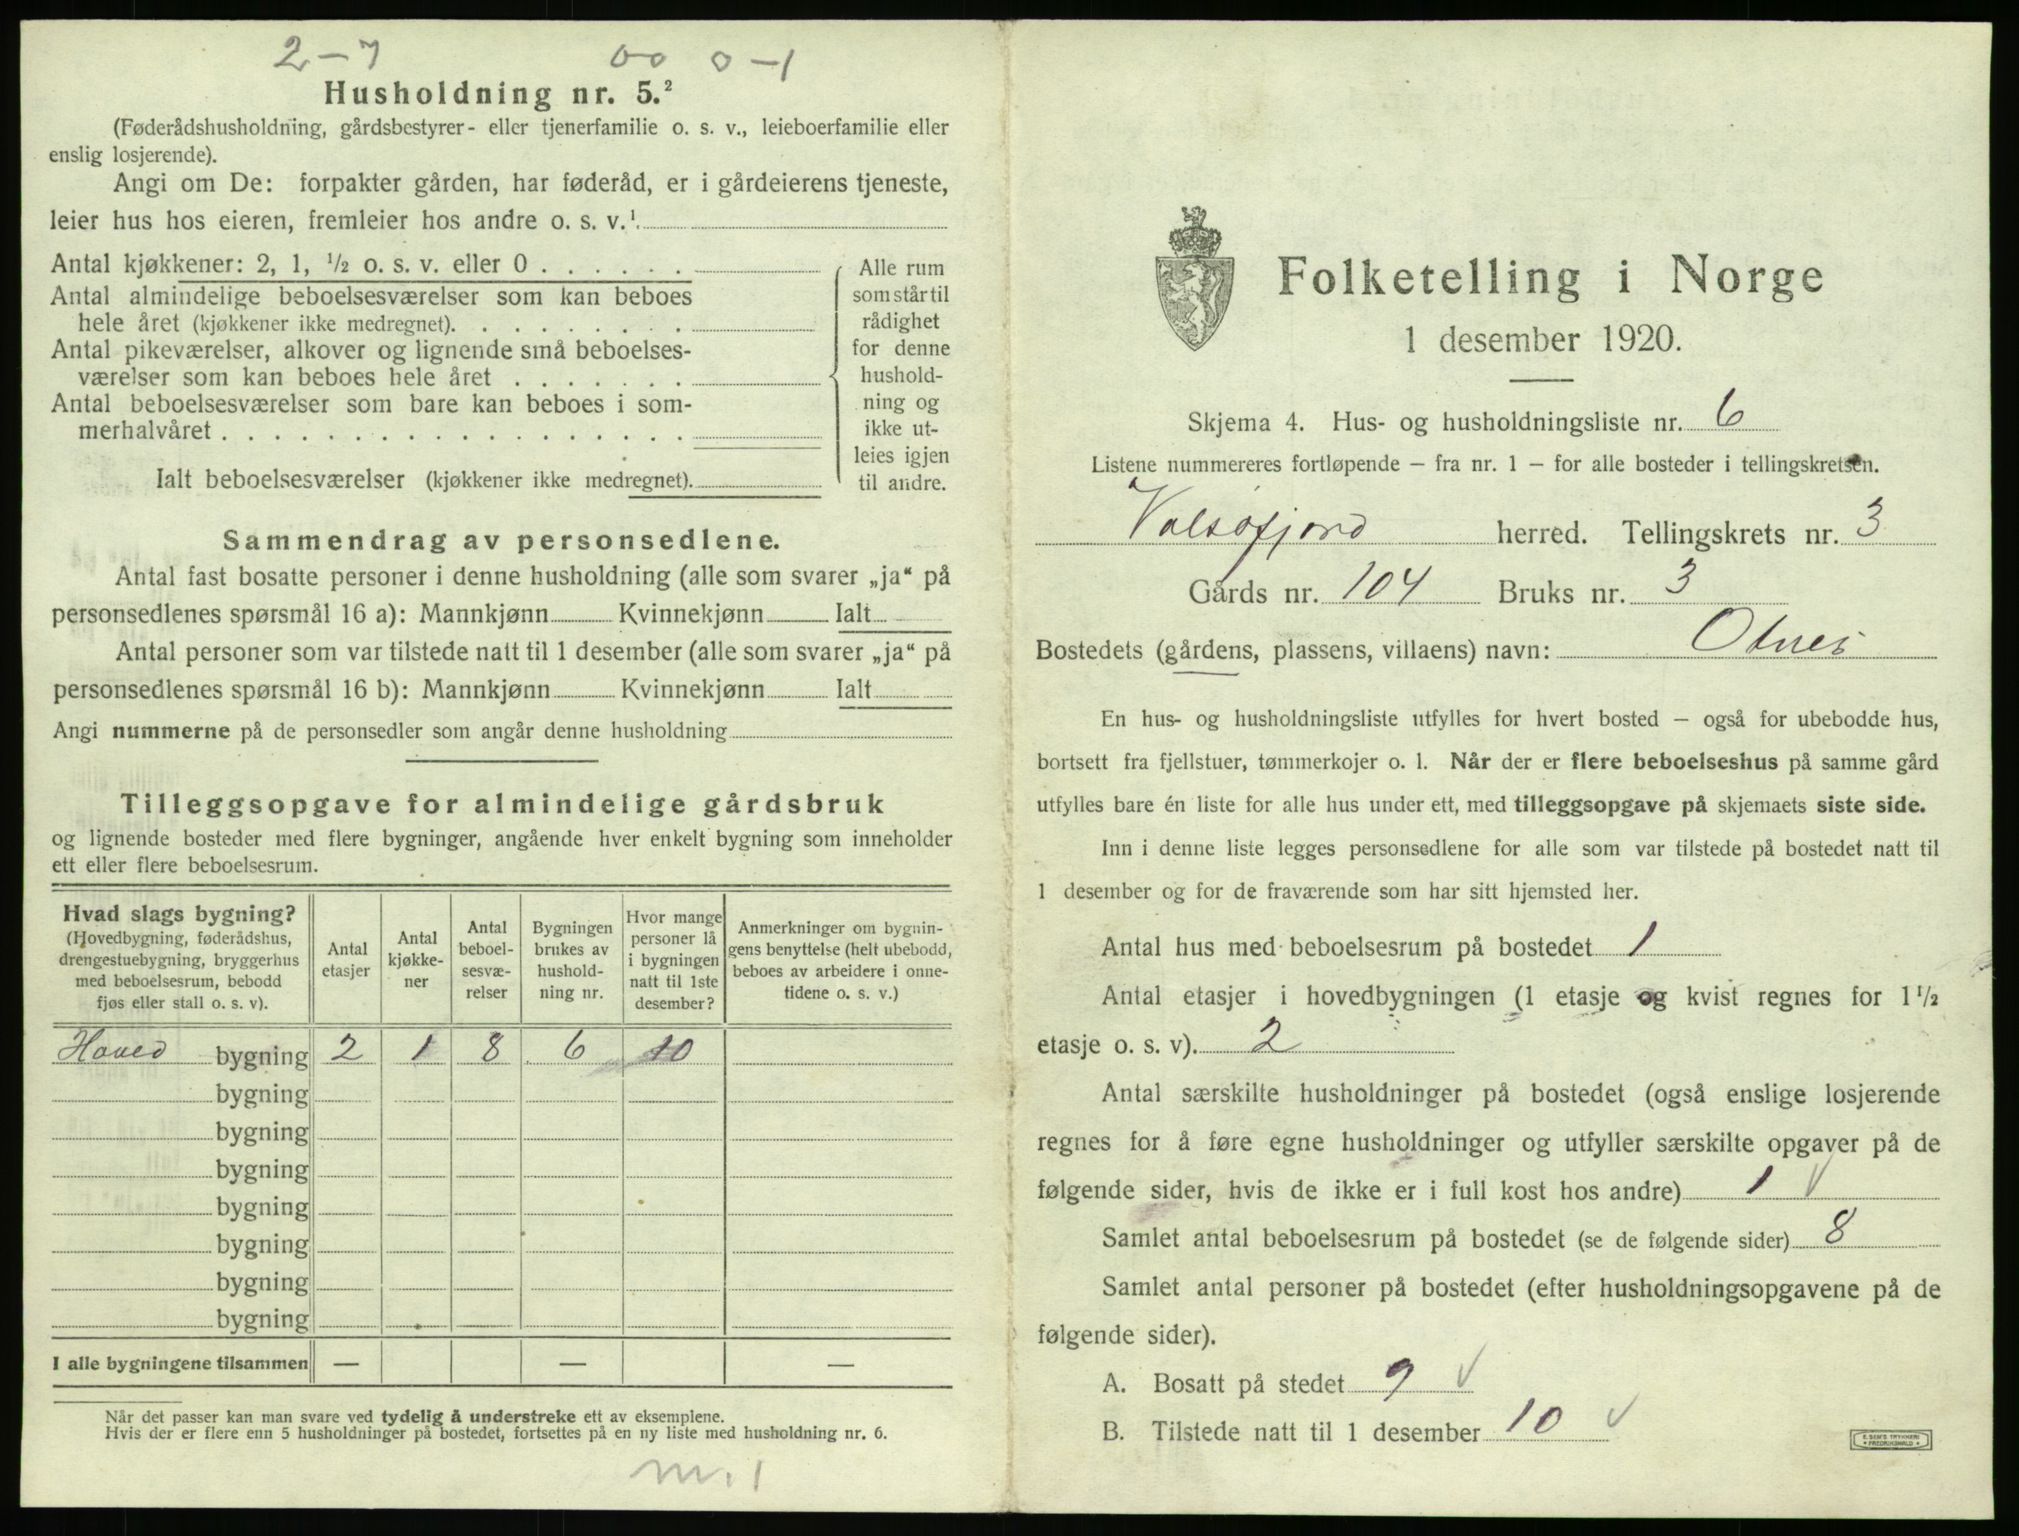 2-7 00 0-1
Husholdning nr. 5.²
(Føderådshusholdning, gårdsbestyrer- eller tjenerfamilie o. s. v., leieboerfamilie eller
enslig losjerende).
Angi om De: forpakter gården, har føderåd, er i gårdeierens tjeneste,
leier hus hos eieren, fremleier hos andre o. s. v.¹
Antal kjøkkener: 2, 1, ½ o. s. v. eller 0
Antal almindelige beboelsesværelser som kan beboes
hele året (kjøkkener ikke medregnet).
Antal pikeværelser, alkover og lignende små beboelses-
værelser som kan beboes hele året
Antal beboelsesværelser som bare kan beboes i som-
merhalvåret
Ialt beboelsesværelser (kjøkkener ikke medregnet).
Alle rum
som står til
rådighet
for denne
hushold-
ning og
ikke ut-
leies igjen
til andre.
Sammendrag av personsedlene.
Antal fast bosatte personer i denne husholdning (alle som svarer „ja“ på
personsedlenes spørsmål 16 a): Mannkjønn Kvinnekjønn Ialt
Antal personer som var tilstede natt til 1 desember (alle som svarer „ja“ på
personsedlenes spørsmål 16 b): Mannkjønn Kvinnekjønn Ialt
Angi nummerne på de personsedler som angår denne husholdning
Tilleggsopgave for almindelige gårdsbruk
og lignende bosteder med flere bygninger, angående hver enkelt bygning som inneholder
ett eller flere beboelsesrum.
Hvad slags bygning?
(Hovedbygning, føderådshus,
drengestuebygning, bryggerhus
med beboelsesrum, bebodd
fjøs eller stall o. s. v).
Antal
etasjer
Antal
kjøkke-
ner
Antal
beboel-
sesvæ-
relser
Bygningen
brukes av
hushold-
ning nr.
Hvor mange
personer lå
i bygningen
natt til 1ste
desember?
Anmerkninger om bygnin-
gens benyttelse (helt ubebodd,
beboes av arbeidere i onne-
tidene o. s. v.)
Hoved bygning 2 1 8 6 10
bygning
bygning
bygning
bygning
bygning
bygning
bygning
I alle bygningene tilsammen — — —
Når det passer kan man svare ved tydelig å understreke ett av eksemplene.
Hvis der er flere enn 5 husholdninger på bostedet, fortsettes på en ny liste med husholdning nr. 6.
m. 1
Folketelling i Norge
1 desember 1920.
Skjema 4. Hus- og husholdningsliste nr. 6
Listene nummereres fortløpende – fra nr. 1 – for alle bosteder i tellingskretsen.
Valsøfjord herred. Tellingskrets nr. 3
Gårds nr. 104 Bruks nr. 3
Bostedets (gårdens, plassens, villaens) navn: Otnes
En hus- og husholdningsliste utfylles for hvert bosted – også for ubebodde hus,
bortsett fra fjellstuer, tømmerkojer o. l. Når der er flere beboelseshus på samme gård
utfylles bare én liste for alle hus under ett, med tilleggsopgave på skjemaets siste side.
Inn i denne liste legges personsedlene for alle som var tilstede på bostedet natt til
1 desember og for de fraværende som har sitt hjemsted her.
Antal hus med beboelsesrum på bostedet 1
Antal etasjer i hovedbygningen (1 etasje og kvist regnes for 1½
etasje o. s. v). 2
Antal særskilte husholdninger på bostedet (også enslige losjerende
regnes for å føre egne husholdninger og utfyller særskilte opgaver på de
følgende sider, hvis de ikke er i full kost hos andre) 1 √
Samlet antal beboelsesrum på bostedet (se de følgende sider) 8
Samlet antal personer på bostedet (efter husholdningsopgavene på de
følgende sider).
A. Bosatt på stedet 9 √
B. Tilstede natt til 1 desember 10 √
E. SEM'S TRYKKERI
• FREDRIKSHALD •